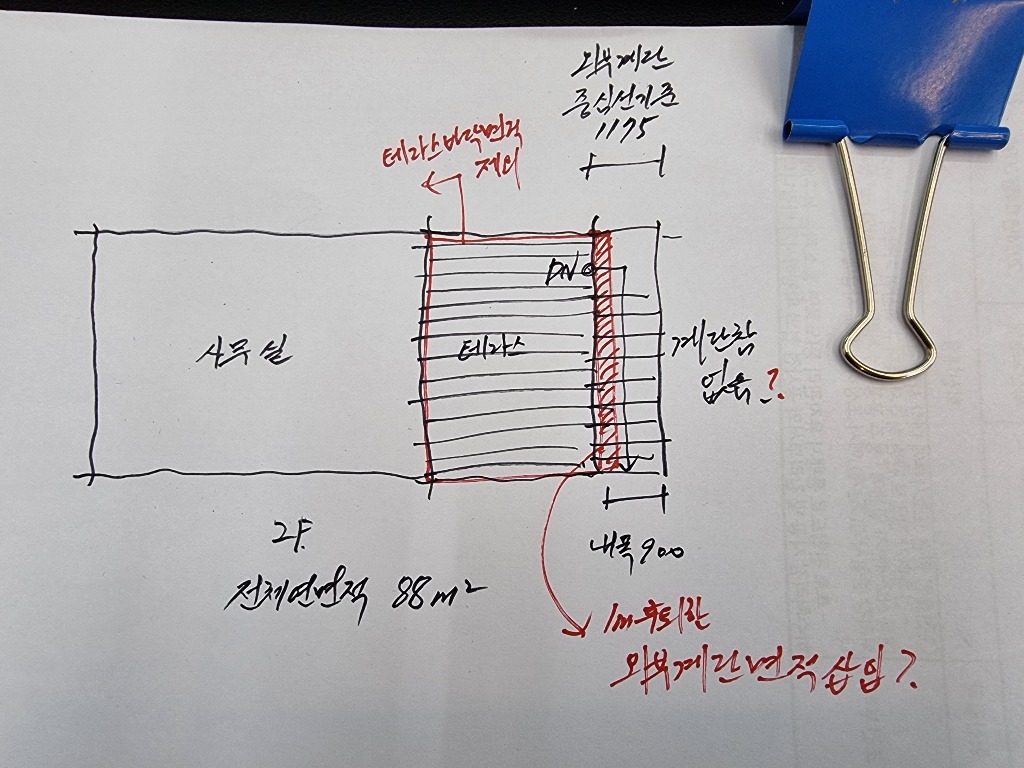 외부계단
중심선기준
1175
테라스바닥면적
제외
DN
사무실
테라스
계단참
없음?
내폭900
2F.
전체연면적 88m²
1m후퇴한
외부계단면적삽입?